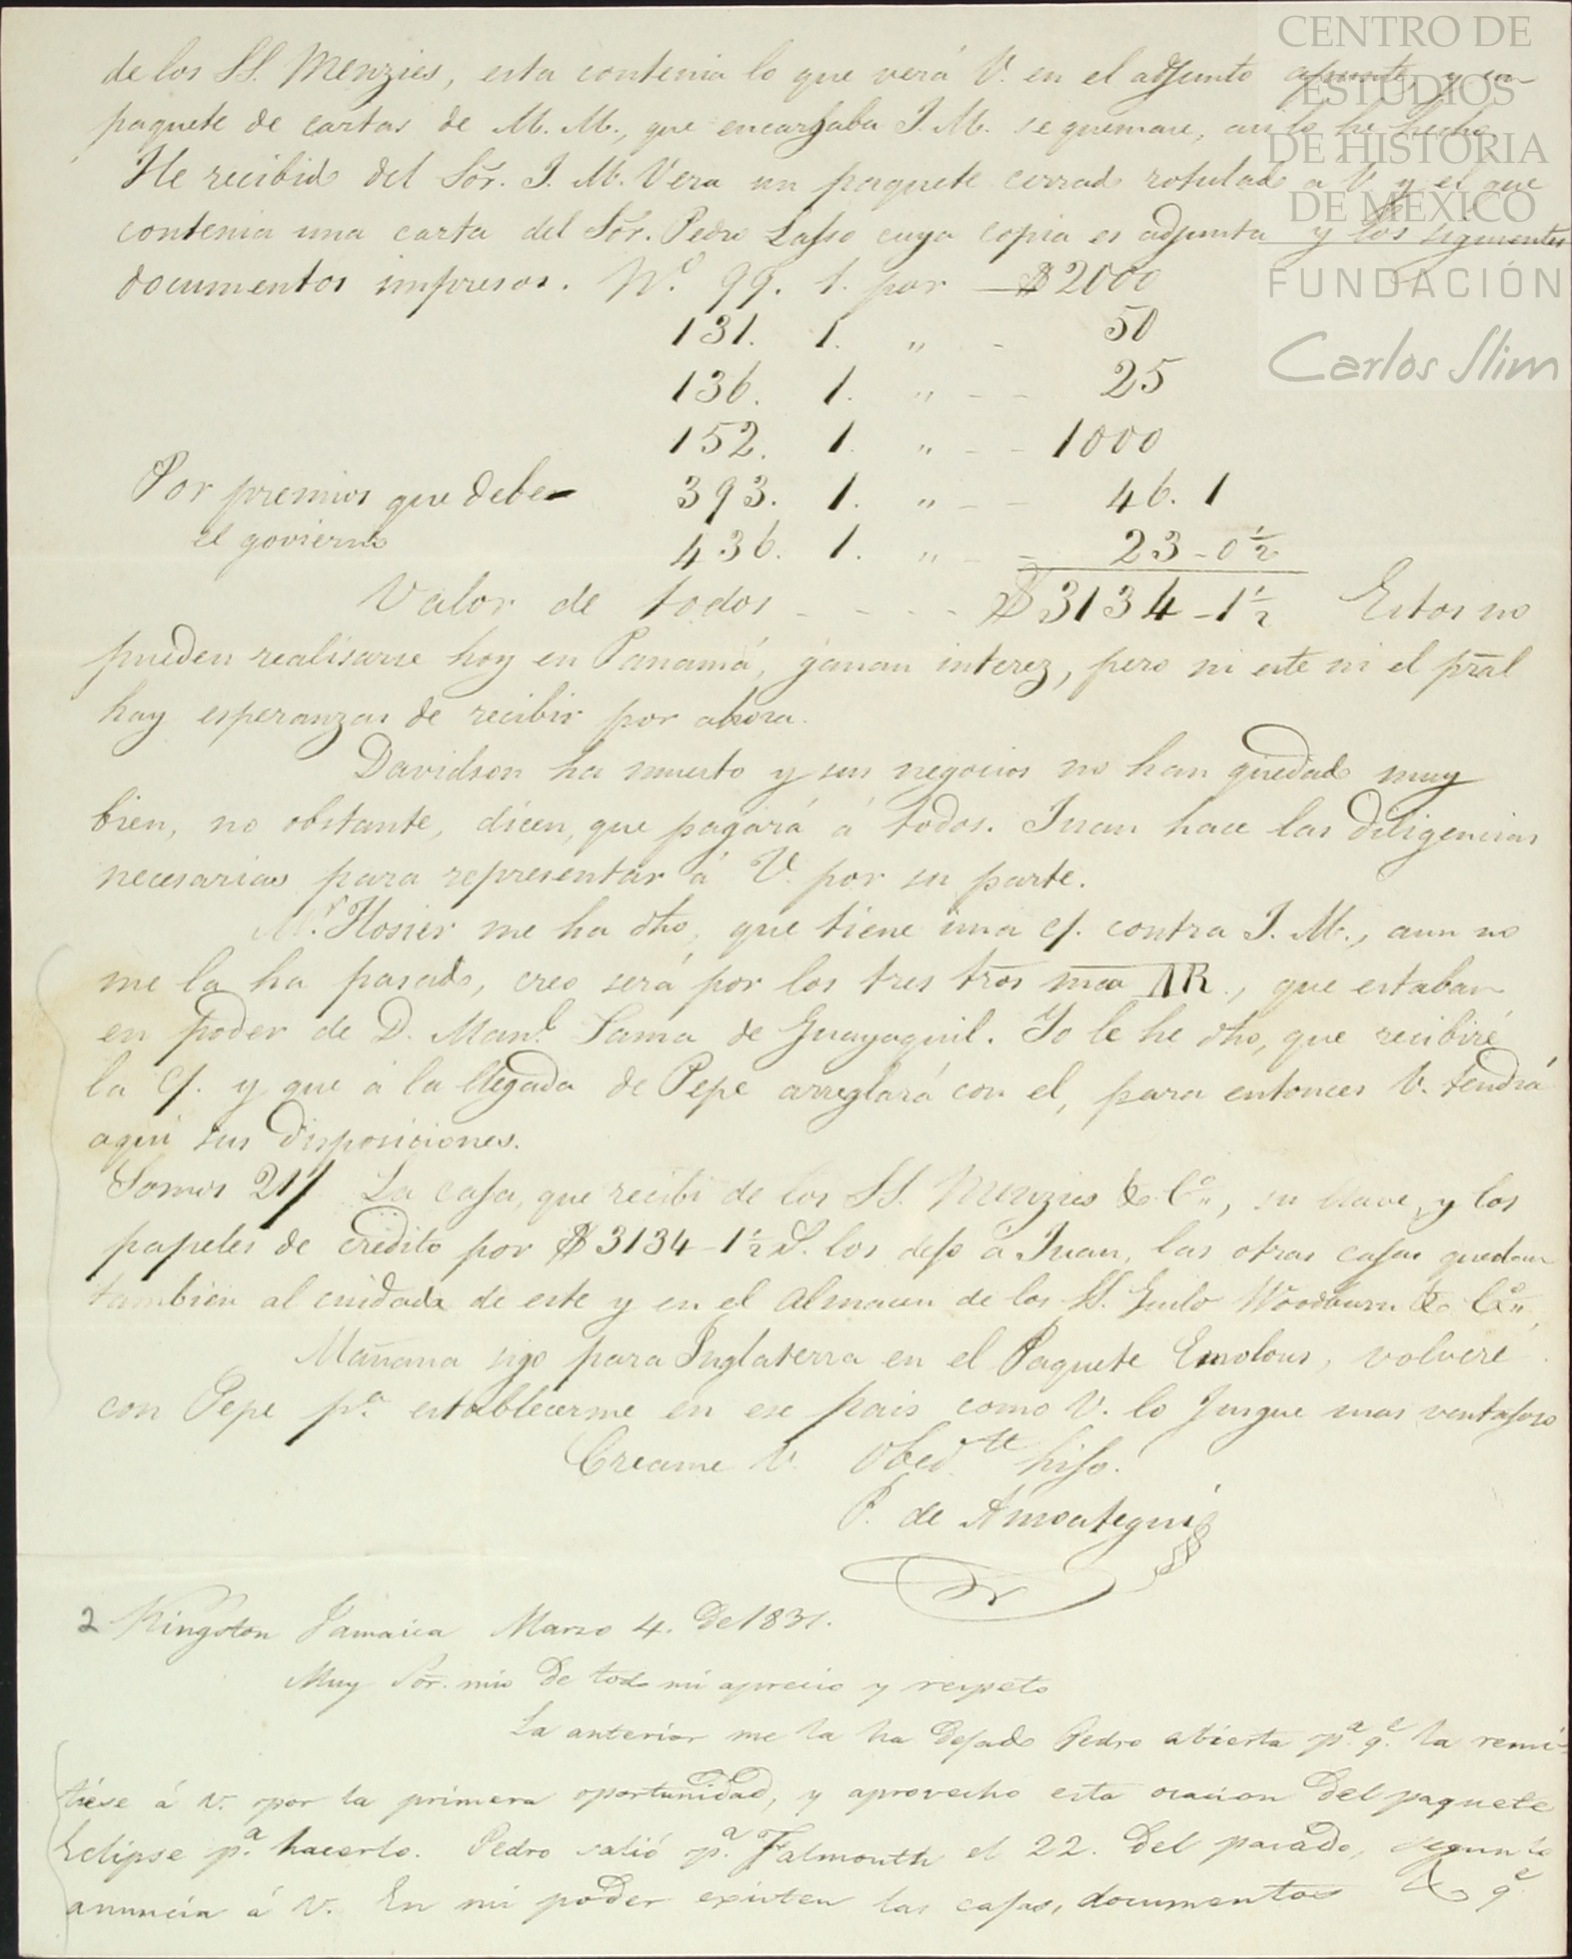 de los SS. Menzies, esta contenia lo que verá V. en el adjunto apunte, y un
paquete de cartas de M. M., que encargaba J. M. se quemase, asi lo he hecho.
He recibido del Sōr. J. M. Vera un paquete cerrado rotulado a V y el que
contenia una carta del Sōr. Pedro Lasso cuya copia es adjunta y los siguientes
documentos impresos. Nº. 99. 1. por — $ 2000
131. 1. " - 50
136. 1. " - - 25
152. 1. " - - 1000
Por premios que debe 393. 1. " - - 46. 1
el govierno 436. 1. " - - 23 - 0 ½
Valor de todos - - - - $ 3134 - 1 ½ Estos no
pueden realisarse hoy en Panamá, ganan interez, pero ni este ni el pr̄al
hay esperanzas de recibir por ahora.
Davidson ha muerto y sus negocios no han quedado muy
bien, no obstante, dicen, que pagará á todos. Juan hace las diligencias
necesarias para representar á V. por su parte.
Mr. Hosier me ha dho, que tiene una c/. contra J. M., aun no
me la ha pasado, creo será por los tres tros mca AR., que estaban
en poder de D. Manl. Lama de Guayaquil. Yo le he dho, que recibiré
la c/. y que á la llegada de Pepe arreglará con el, para entonces V. tendrá
aqui sus disposiciones.
Somos 21/ La caja, que recibi de los SS. Menzies & Co., su llave, y los
papeles de credito por $ 3134 - 1 ½ los dejo á Juan, las otras cajas quedan
tambien al cuidado de este y en el almacen de los SS. Woodburn & Co.,
Mañana sigo para Inglaterra en el Paquete Emolous, volveré
con Pepe pa. establecerme en ese pais como V. lo jusgue mas ventajoso
Creame V. Obedte. hijo.
P. de Amoategui
2 Kingston Jamaica Marzo 4. de 1831.
Muy Sōr. mio de todo mi aprecio y respeto
La anterior me la ha dejado Pedro abierta pa. qe. la remi-
tiese á V. por la primera oportunidad, y aprovecho esta ocacion del paquete
Eclipse pa. hacerlo. Pedro salió pa. Falmouth el 22. del pasado, segun lo
anuncia á V. En mi poder existen las cajas, documentos & qe
CENTRO DE
ESTUDIOS
DE HISTORIA
DE MEXICO
FUNDACIÓN
Carlos Slim